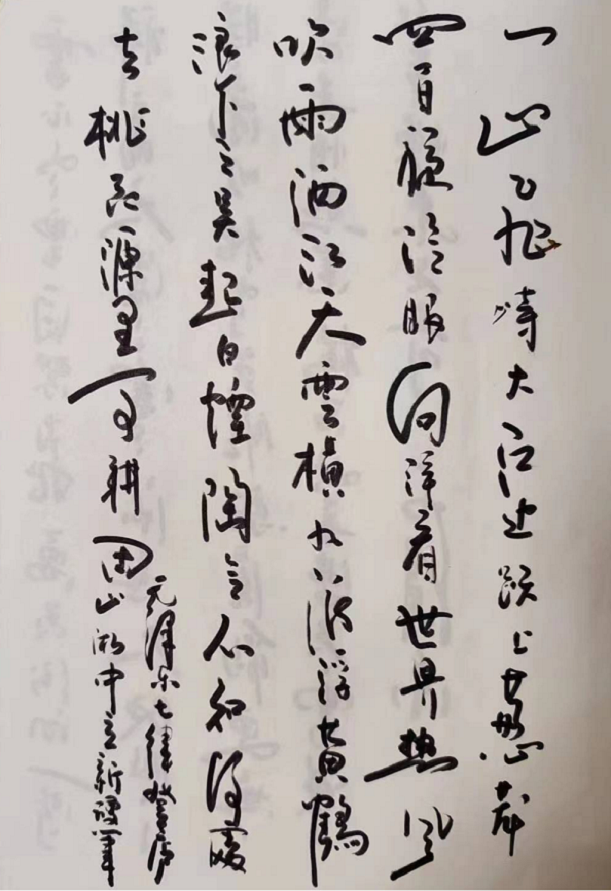 一山飞峙大江边跃上葱茏
四百旋冷眼向洋看世界热风
吹雨洒江天雲横九派浮黄鶴
浪下三吴起白煙陶令不知何處
去桃花源里可耕田
毛泽东七律登庐
山